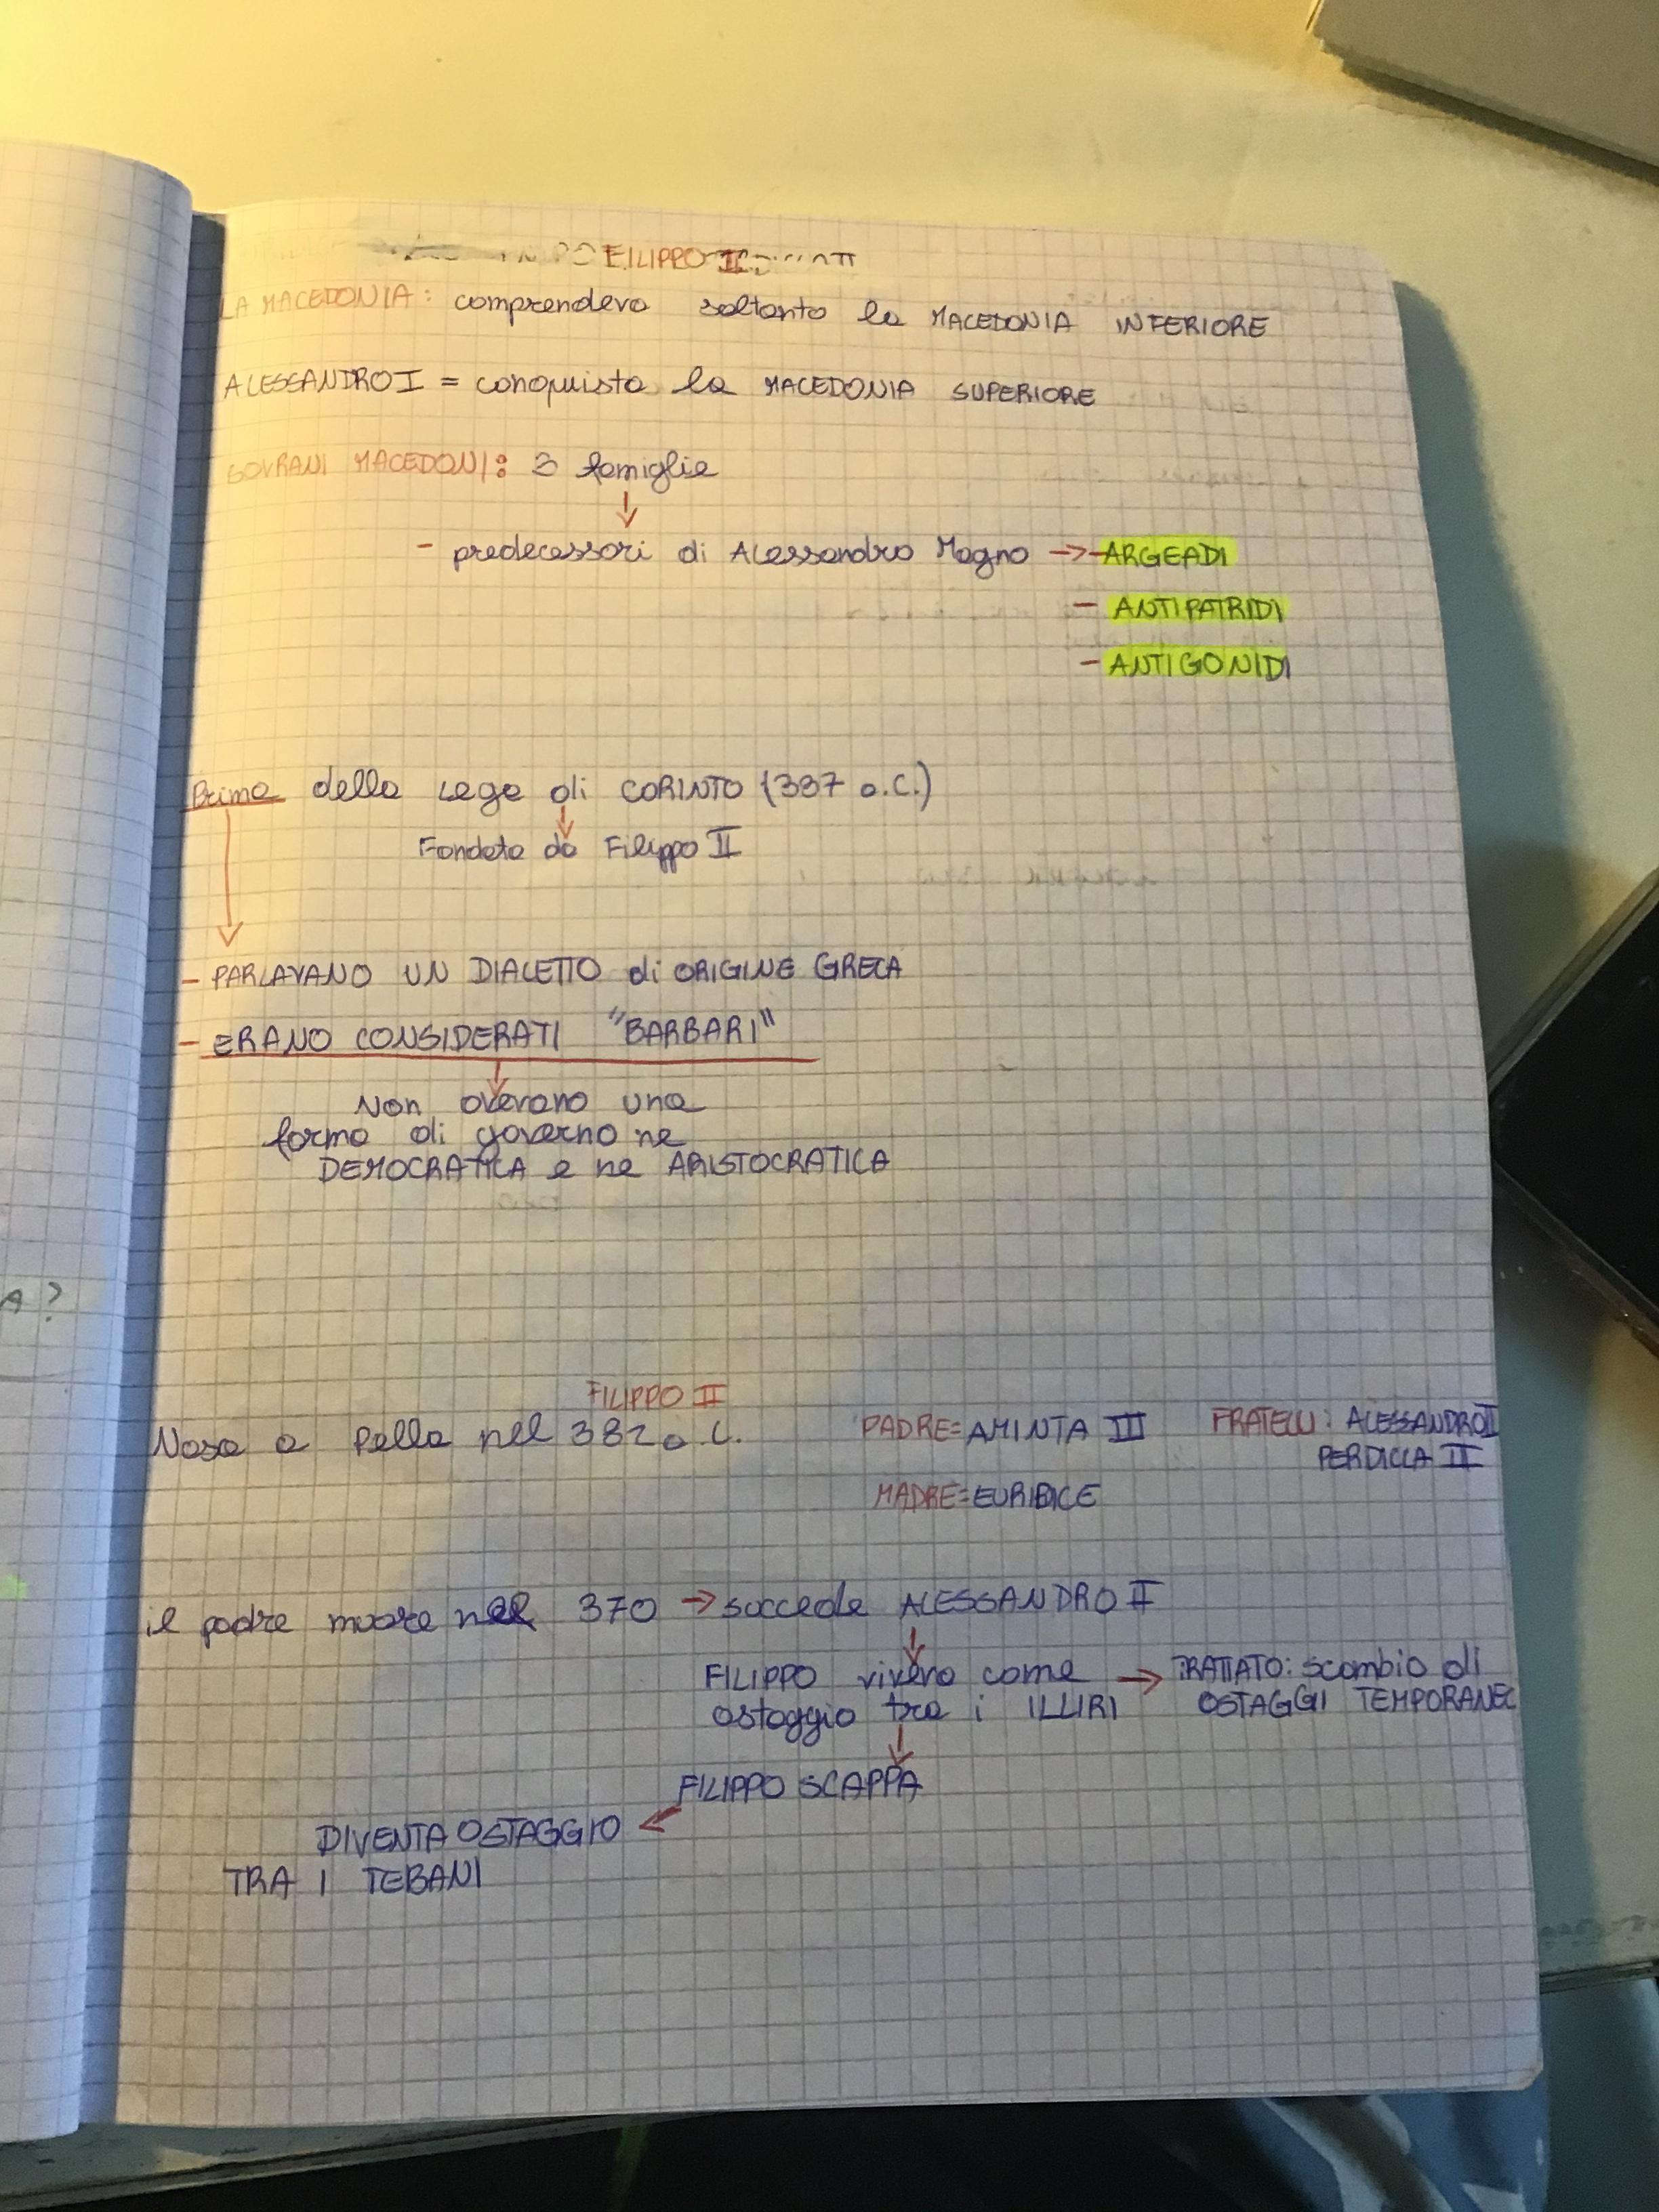 FILIPPO II
LA MACEDONIA: comprendeva soltanto la MACEDONIA INFERIORE
ALESSANDRO I = conquista la MACEDONIA SUPERIORE
SOVRANI MACEDONI: 3 famiglie
- predecessori di Alessandro Magno → - ARGEADI
- ANTIPATRIDI
- ANTIGONIDI
Prima della Lega di CORINTO (337 a.C.)
Fondata da Filippo II
- PARLAVANO UN DIALETTO di ORIGINE GRECA
- ERANO CONSIDERATI "BARBARI"
Non avevano una
forma di governo ne
DEMOCRATICA e ne ARISTOCRATICA
A?
FILIPPO II
Nasa a Pella nel 382 a.C. PADRE= AMINTA III FRATELLI: ALESSANDRO II
PERDICCA II
MADRE= EURIDICE
il padre muore nel 370 → succede ALESSANDRO II
FILIPPO viveva come → TRATTATO: scambio di
ostaggio tra i ILLIRI OSTAGGI TEMPORANEO
FILIPPO SCAPPA
DIVENTA OSTAGGIO ←
TRA I TEBANI